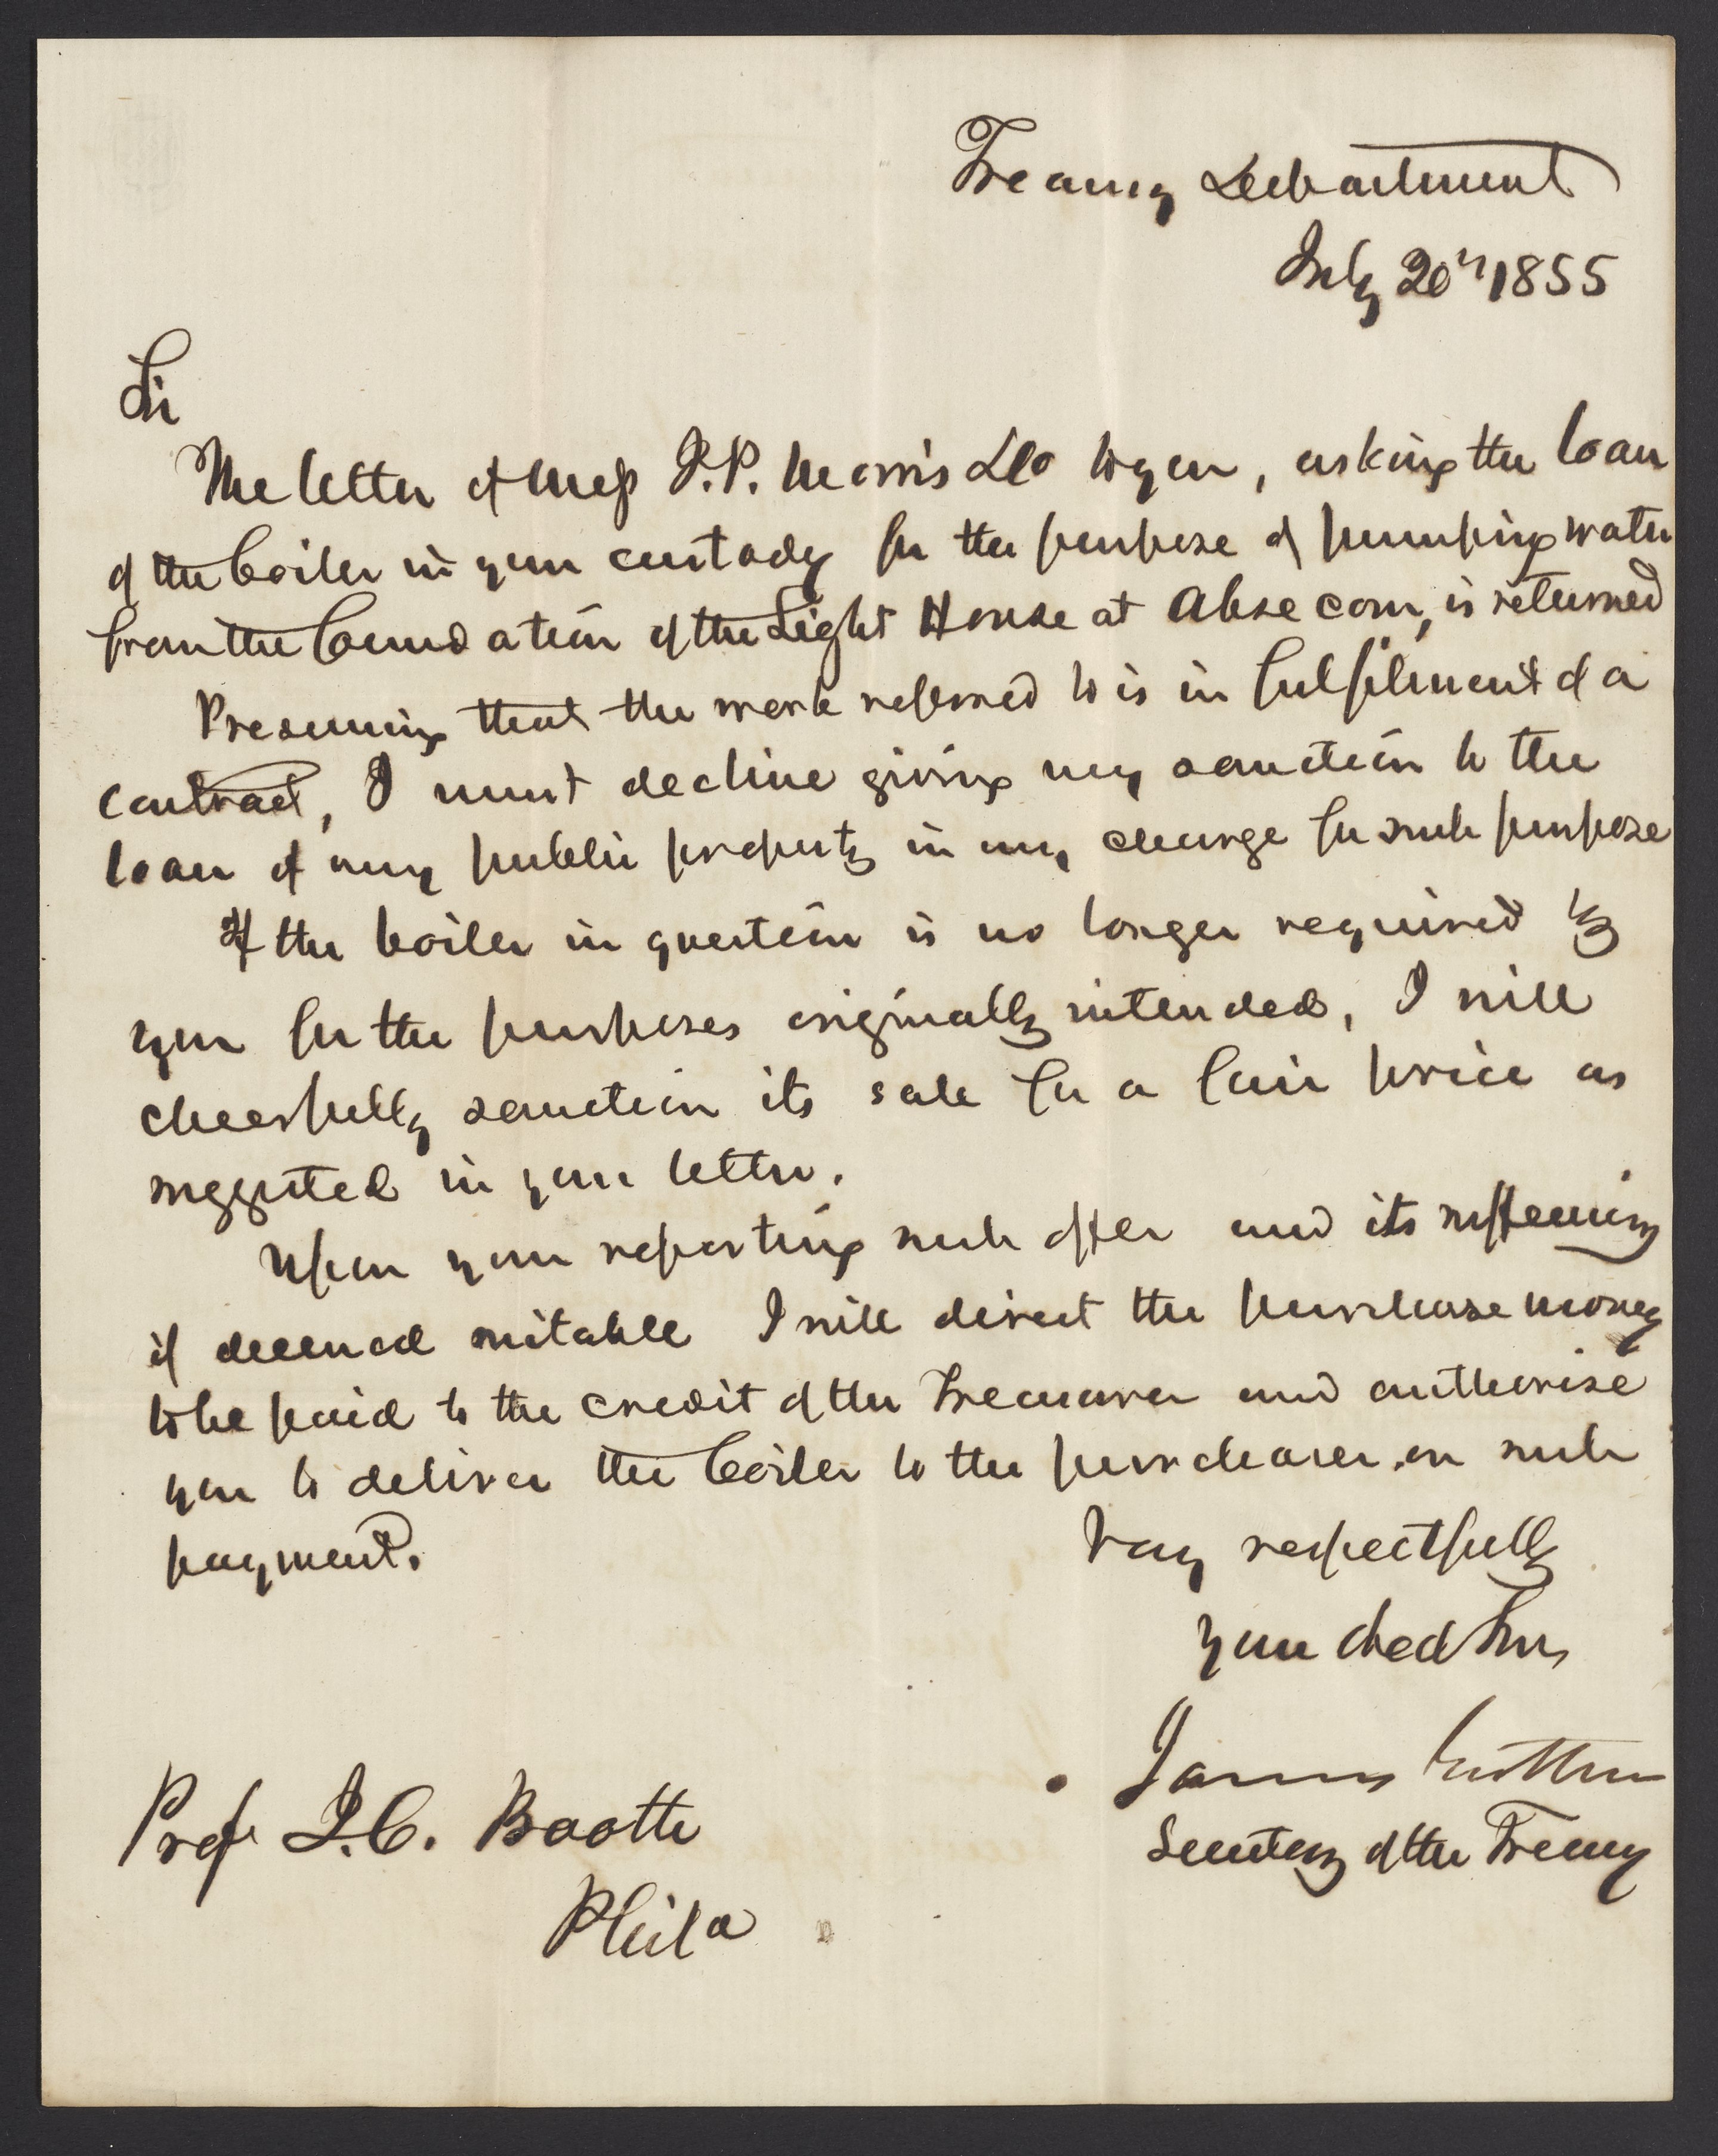 Treasury Department
July 20th 1855
Sir
The letter of Mess I.P. Morris & Co to you, asking the loan
of the boiler in your custody for the purpose of pumping water
from the foundation of the Light House at Absecom, is returned
Presuming that the work referred to is in fulfilment of a
contract, I must decline giving my sanction to the
loan of any public property in my charge for such purpose
If the boiler in question is no longer required by
you for the purposes originally intended, I will
cheerfully sanction its sale for a fair price as
suggested in your letter.
Upon your reporting such offer and its
if deemed suitable I will direct the purchase money
to be paid to the credit of the Treasurer and authorise
you to deliver the boiler to the purchaser on such
payment.
Very respectfully
your obed Srv
James Guthrie
Secretary of the Treasury
Prof J.C. Booth
Phila